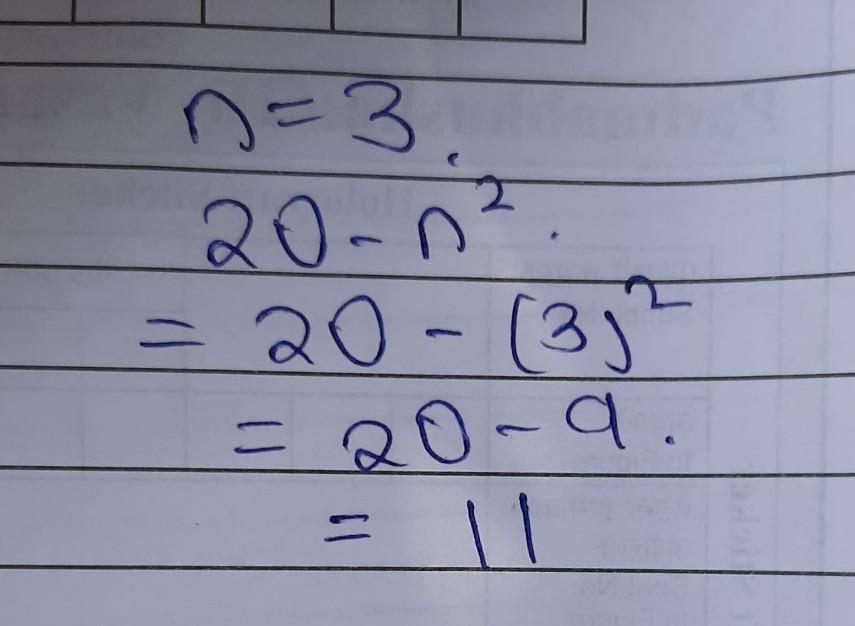 n = 3.
20 - n².
= 20 - (3)²
= 20 - 9.
= 11